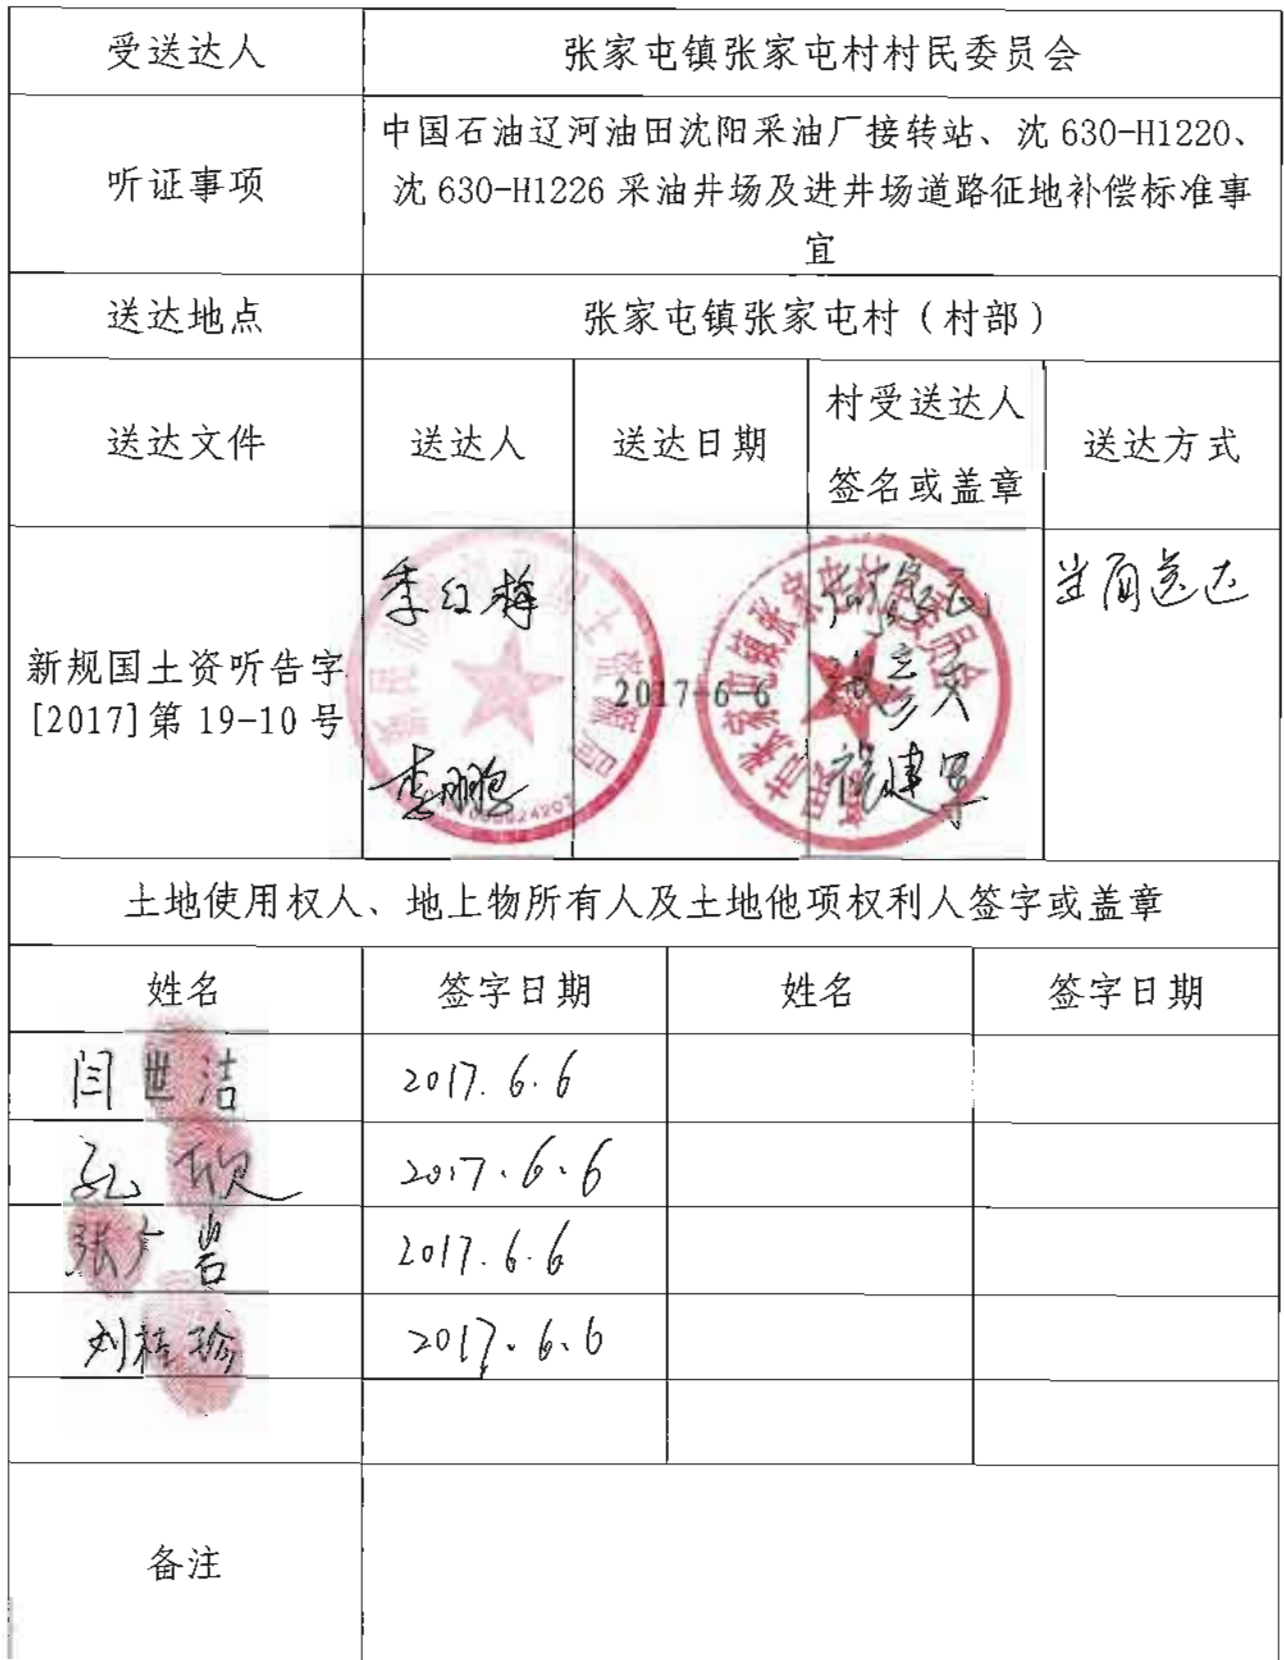 受送达人
张家屯镇张家屯村村民委员会
听证事项
中国石油辽河油田沈阳采油厂接转站、沈 630-H1220、
沈 630-H1226 采油井场及进井场道路征地补偿标准事
宜
送达地点
张家屯镇张家屯村（村部）
送达文件
送达人
送达日期
村受送达人
签名或盖章
送达方式
新规国土资听告字
[2017]第 19-10 号
李红梅
李鹏
2017-6-6
当面送达
土地使用权人、地上物所有人及土地他项权利人签字或盖章
姓名
签字日期
姓名
签字日期
闫世洁
2017.6.6
孔欣
2017.6.6
张广岩
2017.6.6
刘桂珍
2017.6.6
备注